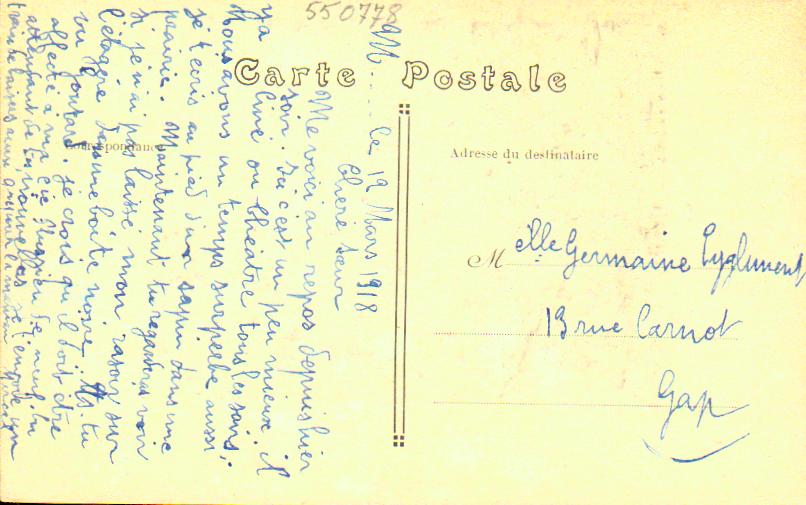 550778
Carte Postale
Correspondance
Adresse du destinataire
M.... le 19 Mars 1918
Chère sœur
Me voici au repos depuis hier
soir. Ici c'est un peu mieux. Il
y a ciné ou théâtre tous les soirs.
Nous avons un temps superbe aussi
je t'écris au pied d'un sapin dans une
prairie. Maintenant tu regarderas voir
si je n'ai pas laissé mon rasoir sur
l'étagère dans une boîte noire. As tu
vu je crois qu'il doit être
affecté à ma Cie de neuf. En
attendant de tes nouvelles je t'envoie un
train de
Melle Germaine Eyglument
13 rue Carnot
Gap